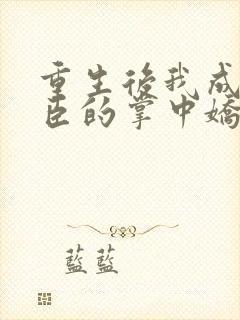 重生後我成
臣的掌中嬌
藍藍